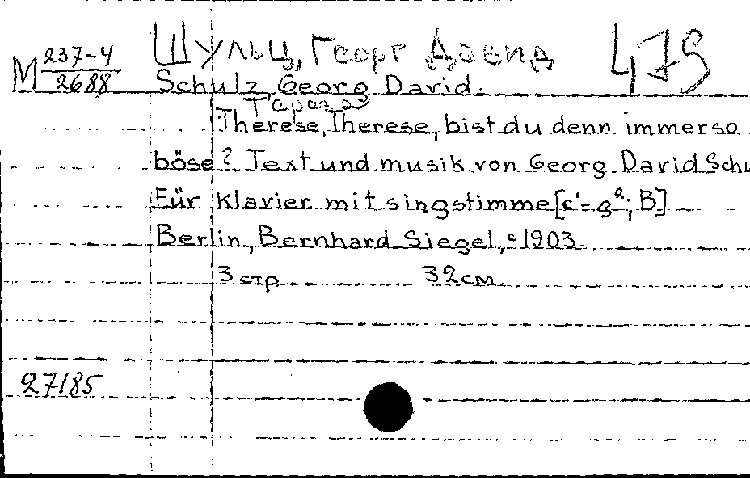 Шульц, Георг Давид 479
М 237-4
2688 Schulz, Georg David.
Therese, Therese, bist du denn immer so
böse? Text und musik von Georg David Schu
Für Klavier mit singstimme [c'-g²; B]
Berlin, Bernhard Siegel, c1903.
3 стр 32 см
27185